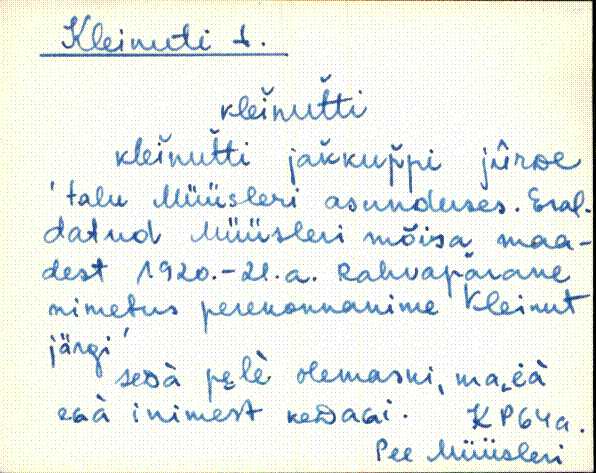 Kleinuti 1.
kleĭnut̆ti
kleĭnut̆ti jak̆kup̆pi jûrᴅe
'talu Müüsleri asunduses. Eral-
datud Müüsleri mõisa maa-
dest 1920.-21.a. Rahvapärane
nimetus perekonnanime Kleinut
järgi'
olemasᴋi,
inimest ᴋeᴅaɢi. KP64a.
Pee Müüsleri